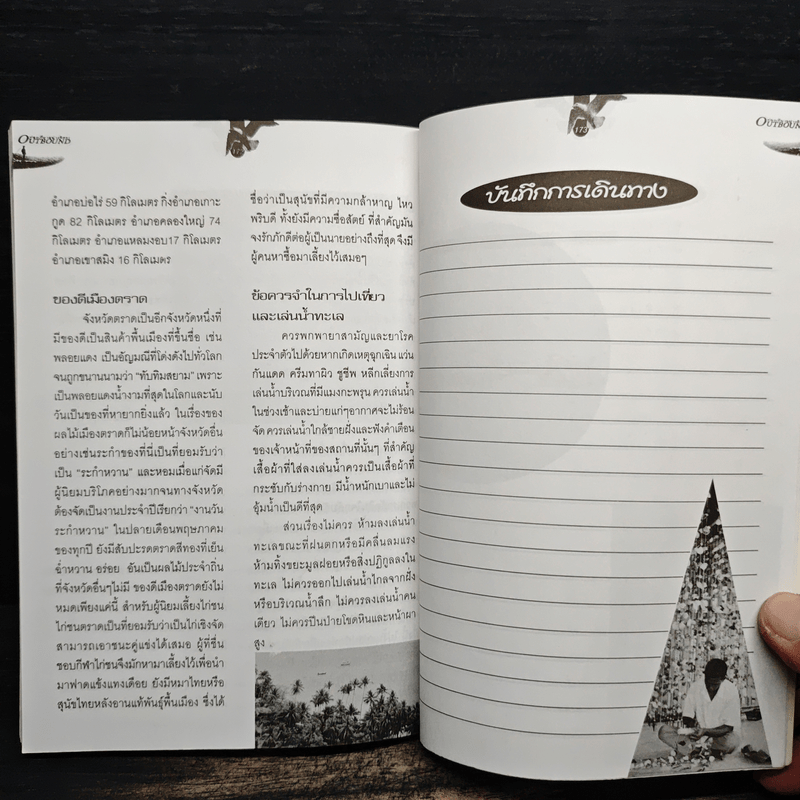 OUTBOUND
อำเภอบ่อไร่ 59 กิโลเมตร กิ่งอำเภอเกาะ
กูด 82 กิโลเมตร อำเภอคลองใหญ่ 74
กิโลเมตร อำเภอแหลมงอบ17 กิโลเมตร
อำเภอเขาสมิง 16 กิโลเมตร
ของดีเมืองตราด
จังหวัดตราดเป็นอีกจังหวัดหนึ่งที่
มีของดีเป็นสินค้าพื้นเมืองที่ขึ้นชื่อ เช่น
พลอยแดง เป็นอัญมณีที่โด่งดังไปทั่วโลก
จนถูกขนานนามว่า "ทับทิมสยาม" เพราะ
เป็นพลอยแดงน้ำงามที่สุดในโลกและนับ
วันเป็นของที่หายากยิ่งแล้ว ในเรื่องของ
ผลไม้เมืองตราดก็ไม่น้อยหน้าจังหวัดอื่น
อย่างเช่นระกำของที่นี่เป็นที่ยอมรับว่า
เป็น "ระกำหวาน" และหอมเมื่อแก่จัดมี
ผู้นิยมบริโภคอย่างมากจนทางจังหวัด
ต้องจัดเป็นงานประจำปีเรียกว่า "งานวัน
ระกำหวาน" ในปลายเดือนพฤษภาคม
ของทุกปี ยังมีสับปะรดตราดสีทองที่เย็น
ฉ่ำหวาน อร่อย อันเป็นผลไม้ประจำถิ่น
ที่จังหวัดอื่นๆไม่มี ของดีเมืองตราดยังไม่
หมดเพียงแค่นี้ สำหรับผู้นิยมเลี้ยงไก่ชน
ไก่ชนตราดเป็นที่ยอมรับว่าเป็นไก่เชิงจัด
สามารถเอาชนะคู่แข่งได้เสมอ ผู้ที่ชื่น
ชอบกีฬาไก่ชนจึงมักหามาเลี้ยงไว้เพื่อนำ
มาฟาดแข้งแทงเดือย ยังมีหมาไทยหรือ
สุนัขไทยหลังอานแท้พันธุ์พื้นเมือง ซึ่งได้
ชื่อว่าเป็นสุนัขที่มีความกล้าหาญ ไหว
พริบดี ทั้งยังมีความซื่อสัตย์ ที่สำคัญมัน
จงรักภักดีต่อผู้เป็นนายอย่างถึงที่สุด จึงมี
ผู้คนหาซื้อมาเลี้ยงไว้เสมอๆ
ข้อควรจำในการไปเที่ยว
และเล่นน้ำทะเล
ควรพกพายาสามัญและยาโรค
ประจำตัวไปด้วยหากเกิดเหตุฉุกเฉิน แว่น
กันแดด ครีมทาผิว ชูชีพ หลีกเลี่ยงการ
เล่นน้ำบริเวณที่มีแมงกะพรุน ควรเล่นน้ำ
ในช่วงเช้าและบ่ายแก่ๆอากาศจะไม่ร้อน
จัด ควรเล่นน้ำใกล้ชายฝั่งและฟังคำเตือน
ของเจ้าหน้าที่ของสถานที่นั้นๆ ที่สำคัญ
เสื้อผ้าที่ใส่ลงเล่นน้ำควรเป็นเสื้อผ้าที่
กระชับกับร่างกาย มีน้ำหนักเบาและไม่
อุ้มน้ำเป็นดีที่สุด
ส่วนเรื่องไม่ควร ห้ามลงเล่นน้ำ
ทะเลขณะที่ฝนตกหรือมีคลื่นลมแรง
ห้ามทิ้งขยะมูลฝอยหรือสิ่งปฏิกูลลงใน
ทะเล ไม่ควรออกไปเล่นน้ำไกลจากฝั่ง
หรือบริเวณน้ำลึก ไม่ควรลงเล่นน้ำคน
เดียว ไม่ควรปีนป่ายโขดหินและหน้าผา
สูง
173
บันทึกการเดินทาง